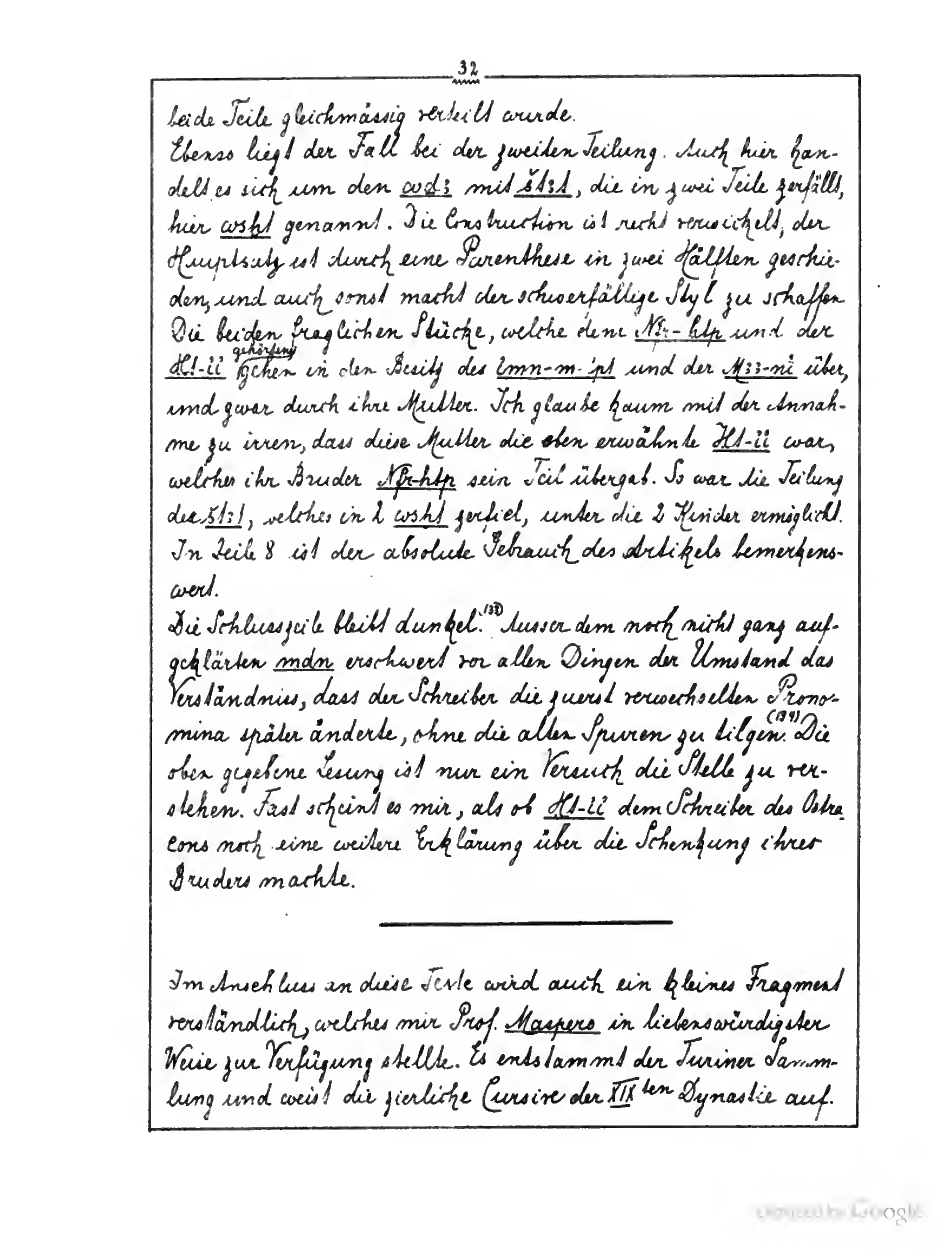 32
beide Teile gleichmässig verteilt wurde.
Ebenso liegt der Fall bei der zweiten Teilung. Auch hier han-
delt es sich um den wḏꜣ mit štꜣt, die in zwei Teile zerfällt,
hier wsḫt genannt. Die Construction ist recht verwickelt, der
Hauptsatz ist durch eine Parenthese in zwei Hälften geschie-
den, und auch sonst macht der schwerfällige Styl zu schaffen
Die beiden fraglichen Stücke, welche dem Nfr-ḥtp und der
Ḥt-ii gehörten, gehen in den Besitz des imn-m-ipt und der Mꜣꜣ-ni über,
und zwar durch ihre Mutter. Ich glaube kaum mit der Annah-
me zu irren, dass diese Mutter die oben erwähnte Ḥt-ii war,
welcher ihr Bruder Nfr-ḥtp sein Teil übergab. So war die Teilung
der štꜣt, welches in 2 wsḫt zerfiel, unter die 2 Kinder ermöglicht.
In Zeile 8 ist der absolute Gebrauch des Artikels bemerkens-
wert.
Die Schlusszeile bleibt dunkel. Ausser dem noch nicht ganz auf-
geklärten mdn erschwert vor allen Dingen der Umstand das
Verständniss, dass der Schreiber die zuerst verwechselten Prono-
mina später änderte, ohne die alten Spuren zu tilgen. (134) Die
oben gegebene Lesung ist nur ein Versuch die Stelle zu ver-
stehen. Fast scheint es mir, als ob Ḥt-ii dem Schreiber des Ostra
cons noch eine weitere Erklärung über die Schenkung ihres
Bruders machte.
Im Anschluss an diese Texte wird auch ein kleines Fragment
verständlich, welches mir Prof. Maspero in liebenswürdigster
Weise zur Verfügung stellte. Es entstammt der Turiner Samm-
lung und weist die zierliche Cursive der XIXten Dynastie auf.
Digitized by Google